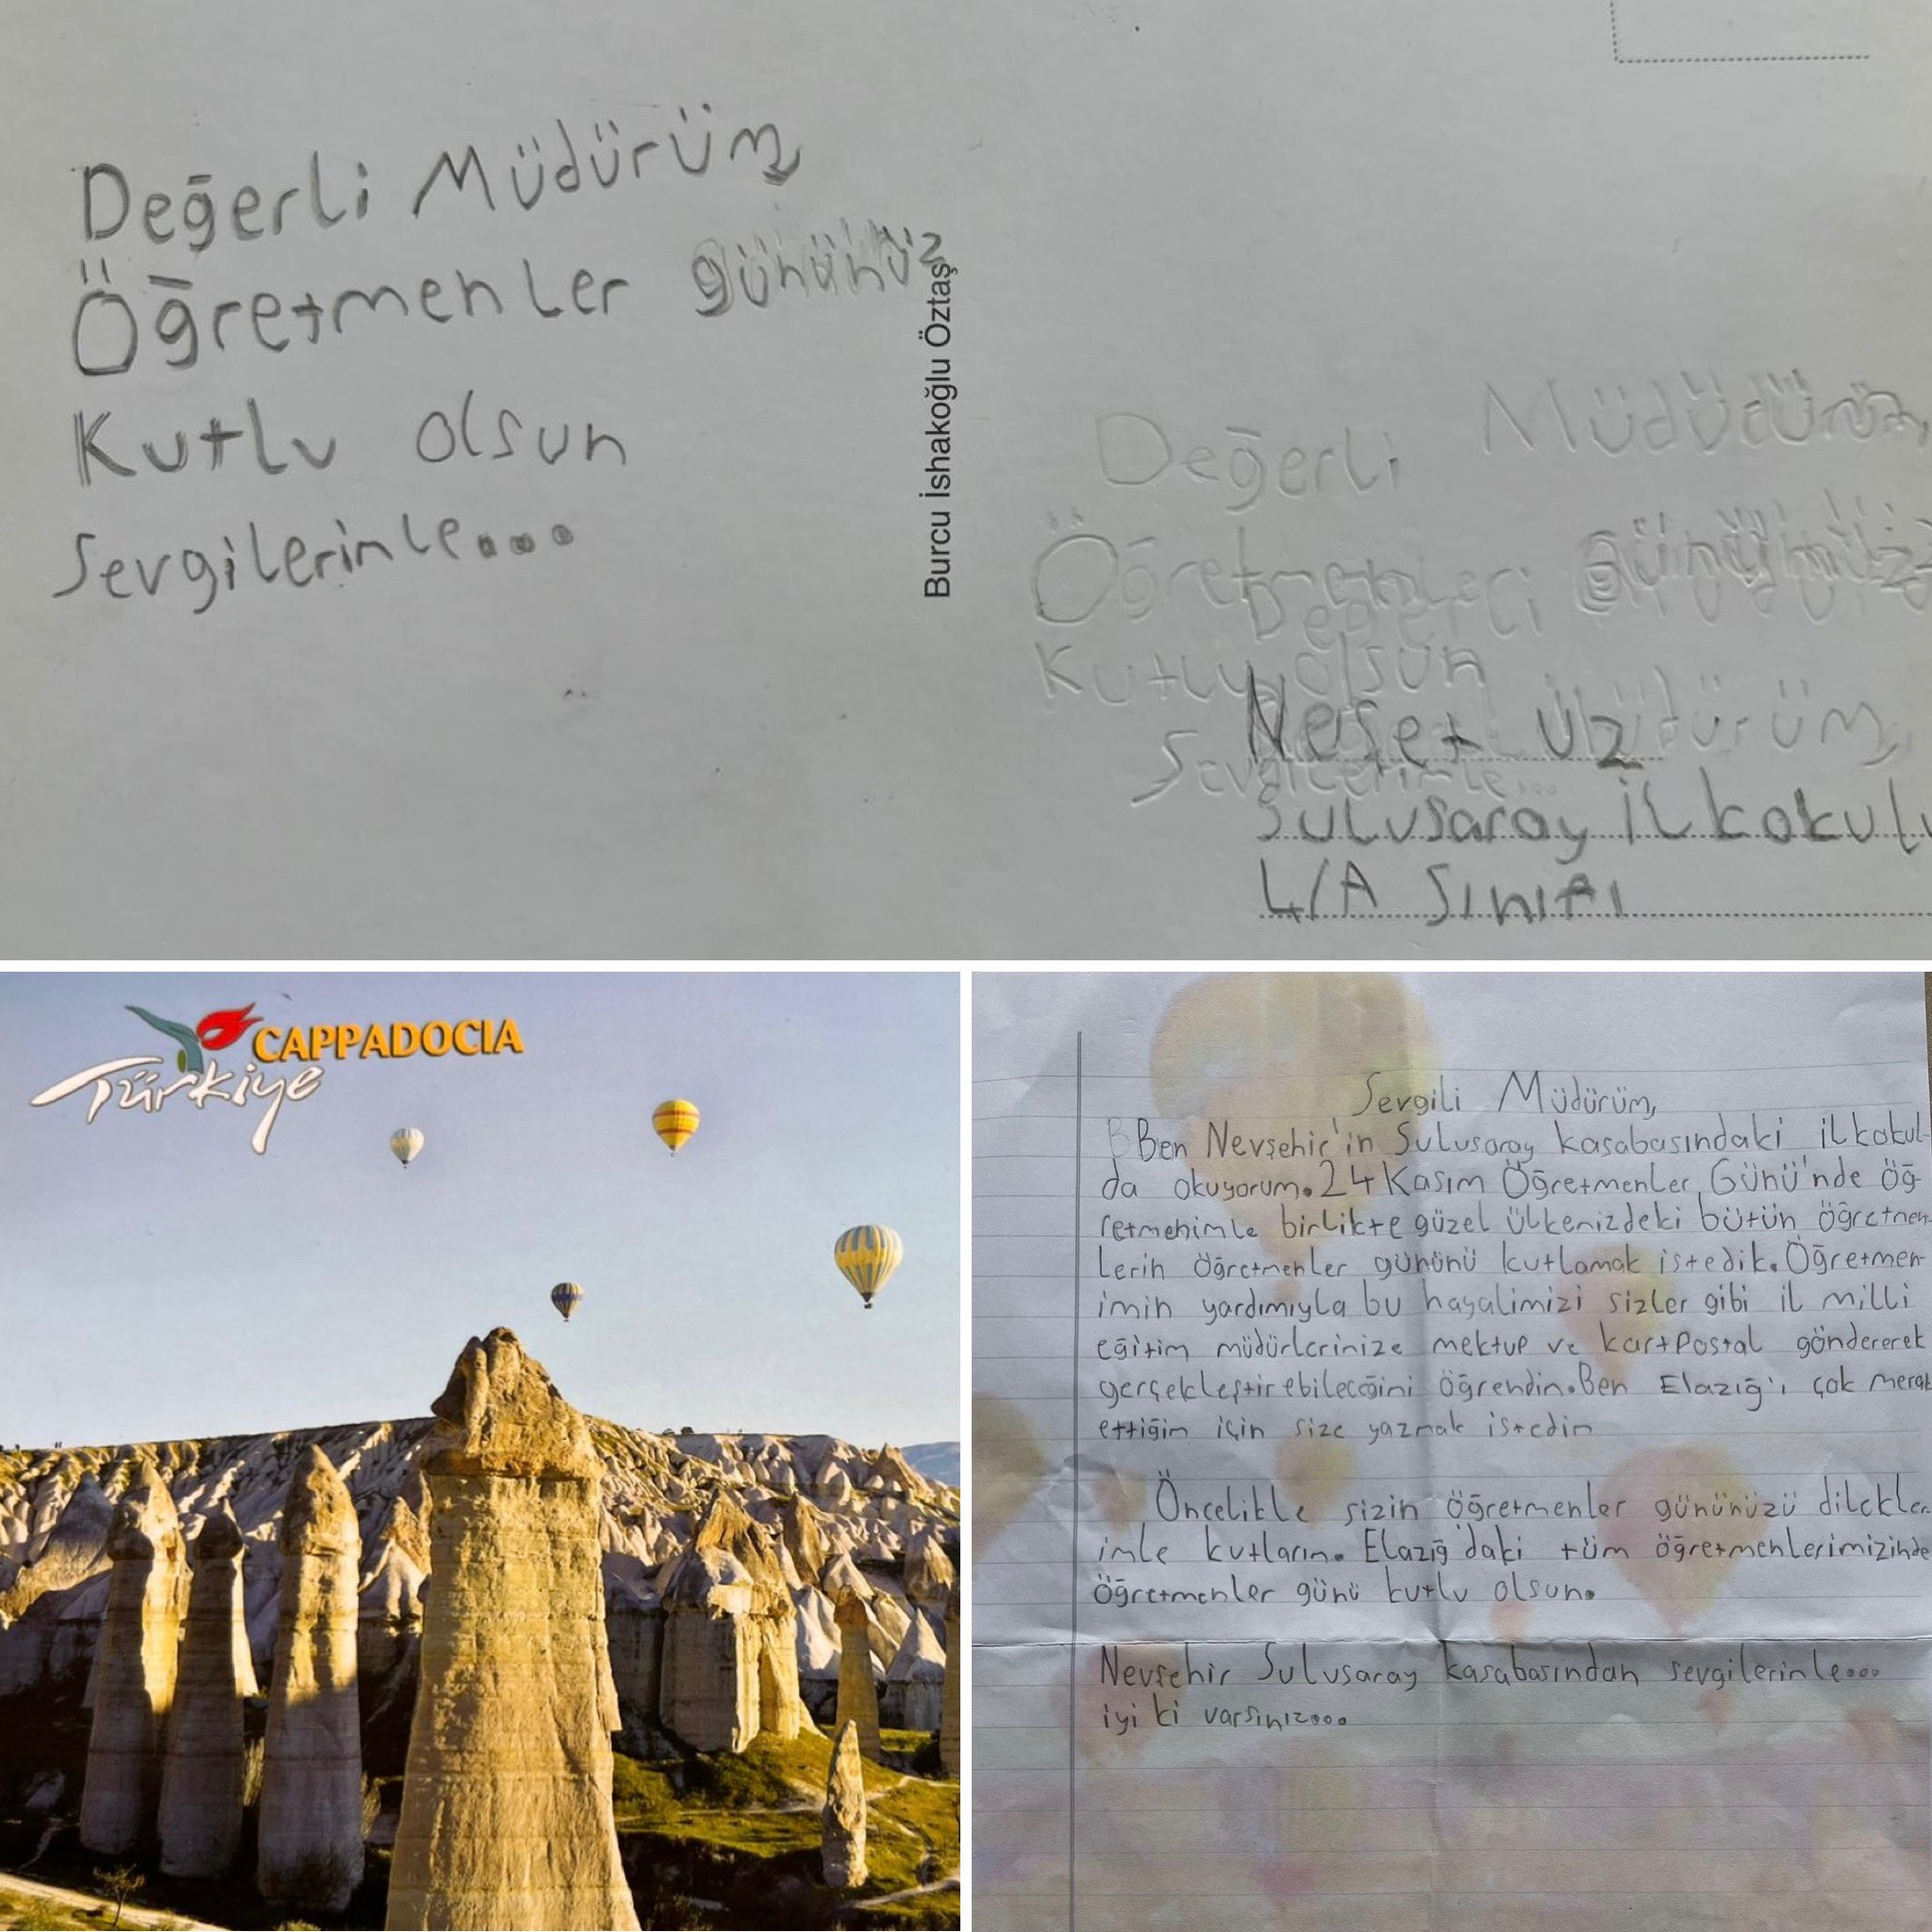 Değerli Müdürüm,
Öğretmenler gününüz
Kutlu olsun
Sevgilerimle...
Burcu İshakoğlu Öztaş
Değerli
Kutlu olsun
Neşet Uz
Sulusaray İlkokulu
4/A Sınıfı
CAPPADOCIA
Türkiye
Sevgili Müdürüm,
Ben Nevşehir'in Sulusaray kasabasındaki ilkokul-
da okuyorum. 24 Kasım Öğretmenler Günü'nde öğ-
retmenimle birlikte güzel ülkenizdeki bütün öğretmen-
lerin öğretmenler gününü kutlamak istedik. Öğretmen-
imin yardımıyla bu hayalimizi sizler gibi il milli
eğitim müdürlerinize mektup ve kartpostal göndererek
gerçekleştirebileceğini öğrendim. Ben Elazığ'ı çok merak
ettiğim için size yazmak istedim
Öncelikle sizin öğretmenler gününüzü dilekler-
imle kutlarım. Elazığ'daki tüm öğretmenlerimizinde
öğretmenler günü kutlu olsun.
Nevşehir Sulusaray kasabasından sevgilerimle...
iyi ki varsınız...